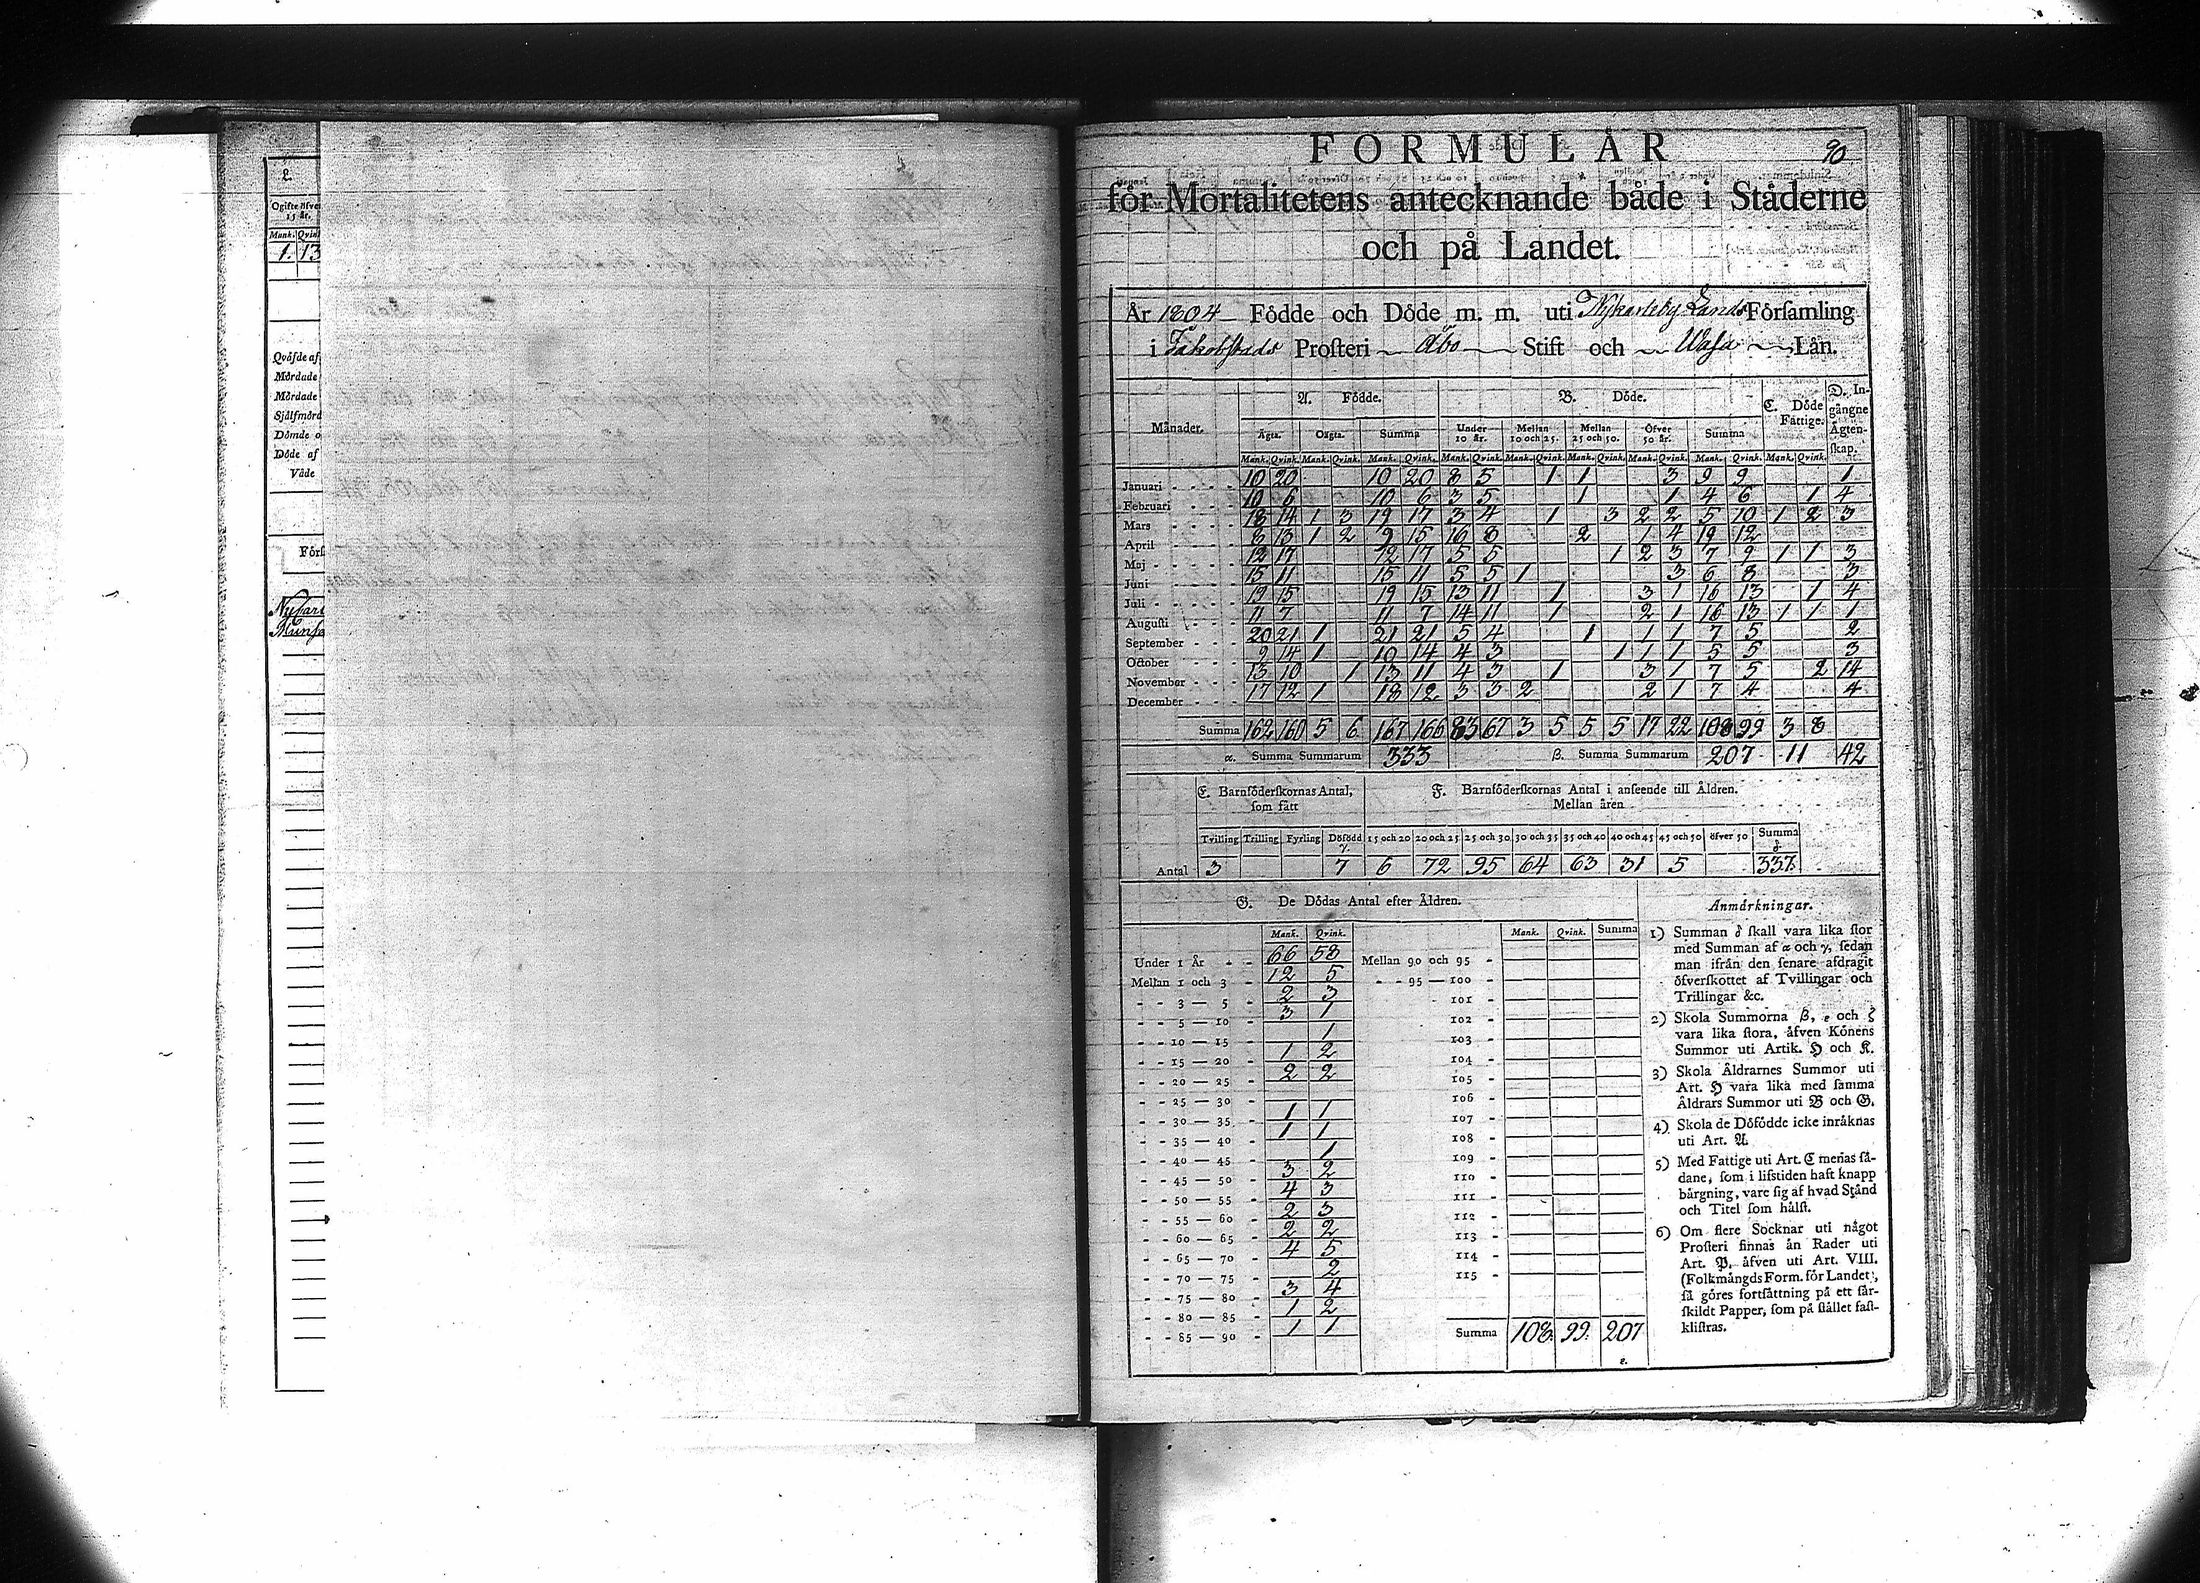 2.
Ogifte öfver
15 år.
Mank. Qvink
1. 13
Qväfde af
Mördade
Mördade
Själfmörd
Dömde o
Döde af
Våde
Förs
Nykarl
Munsa
90
FORMULÄR
för Mortalitetens antecknande både i Städerne
och på Landet.
År 1804 Födde och Döde m. m. uti Nykarleby Lands Församling
i Jakobstads Prosteri Åbo Stift och Wasa Län.
Månader. A. Födde. B. Döde. C. Döde Fattige. D. Ingångne Ägtenskap.
Ägta. Oägta. Summa Under 10 år. Mellan 10 och 25. Mellan 25 och 50. Öfver 50 år. Summa
Mank. Qvink. Mank. Qvink. Mank. Qvink. Mank. Qvink. Mank. Qvink. Mank. Qvink. Mank. Qvink. Mank. Qvink. Mank. Qvink.
Januari 10 20 10 20 8 5 1 1 3 9 9 1
Februari 10 6 10 6 3 5 1 1 4 6 1 4
Mars 18 14 1 3 19 17 3 4 1 3 2 2 5 10 1 2 3
April 8 13 1 2 9 15 16 8 2 1 4 19 12
Maj 12 17 12 17 5 5 1 2 3 7 9 1 1 3
Juni 15 11 15 11 5 5 1 3 6 8 3
Juli 19 15 19 15 13 11 1 3 1 16 13 1 4
Augusti 11 7 11 7 14 11 1 2 1 16 13 1 1 1
September 20 21 1 21 21 5 4 1 1 1 7 5 2
October 9 14 1 10 14 4 3 1 1 1 5 5 3
November 13 10 1 13 11 4 3 1 3 1 7 5 2 14
December 17 12 1 18 12 3 3 2 2 1 7 4 4
Summa 162 160 5 6 167 166 83 67 3 5 5 5 17 22 108 99 3 8
α. Summa Summarum 333 β. Summa Summarum 207 11 42
E. Barnföderskornas Antal, som fått
F. Barnföderskornas Antal i anseende till Åldren.
Mellan åren
Tvilling Trilling Fyrling Dödfödd γ. 15 och 20 20 och 25 25 och 30 30 och 35 35 och 40 40 och 45 45 och 50 öfver 50 Summa δ
Antal 3 7 6 72 95 64 63 31 5 337.
G. De Dödas Antal efter Åldren.
Mank. Qvink. Mank. Qvink. Summa
Under 1 År - - 66 58 Mellan 90 och 95 -
Mellan 1 och 3 - 12 5 - - 95 — 100 -
- - 3 — 5 - 2 3 101 -
- - 5 — 10 - 3 1 102 -
- - 10 — 15 - 1 103 -
- - 15 — 20 - 1 2 104 -
- - 20 — 25 - 2 2 105 -
- - 25 — 30 - 106 -
- - 30 — 35 - 1 1 107 -
- - 35 — 40 - 1 1 108 -
- - 40 — 45 - 1 109 -
- - 45 — 50 - 3 2 110 -
- - 50 — 55 - 4 3 111 -
- - 55 — 60 - 2 3 112 -
- - 60 — 65 - 2 2 113 -
- - 65 — 70 - 4 5 114 -
- - 70 — 75 - 2 115 -
- - 75 — 80 - 3 4
- - 80 — 85 - 1 2
- - 85 — 90 - 1 1
Summa 108. 99. 207
ε.
Anmärkningar.
1) Summan δ skall vara lika stor
med Summan af α och γ, sedan
man ifrån den senare afdragit
öfverskottet af Tvillingar och
Trillingar &c.
2) Skola Summorna β, ε och ζ
vara lika stora, äfven Könens
Summor uti Artik. H och K.
3) Skola Åldrarnes Summor uti
Art. H vara lika med samma
Åldrars Summor uti B och G.
4) Skola de Dödfödde icke inräknas
uti Art. A.
5) Med Fattige uti Art. C menas så-
dane, som i lifstiden haft knapp
bärgning, vare sig af hvad Stånd
och Titel som hälst.
6) Om flere Socknar uti något
Prosteri finnas än Rader uti
Art. P, äfven uti Art. VIII.
(Folkmängds Form. för Landet),
så göres fortsättning på ett sär-
skildt Papper, som på stället fast-
klistras.